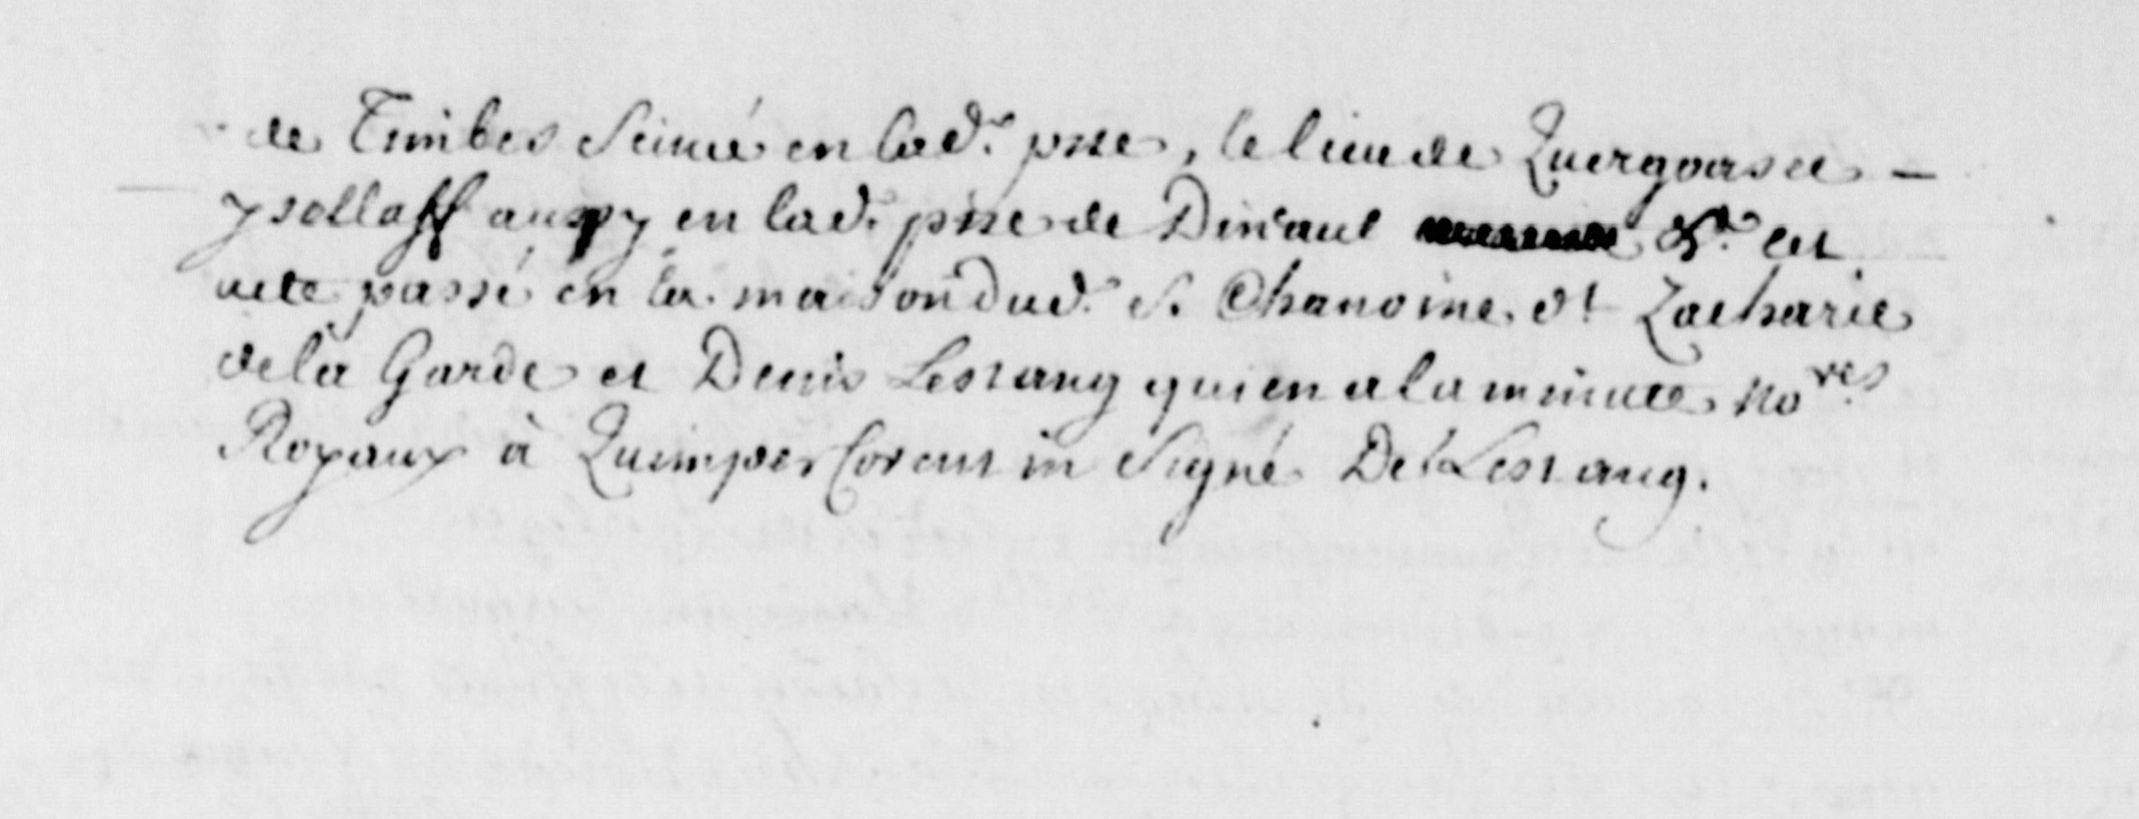 de Timbes scitué en lad.e psse, le lieu de Quergoasee -
ysellaff aussy en lad.e psse de Dineaul &a. cet
acte passé en la maison dud. S. Chanoine. dt Zacharie
de la Garde et Denis Lestang qui en a la minute No.res
Royaux à Quimper Corentin signé De Lestang.